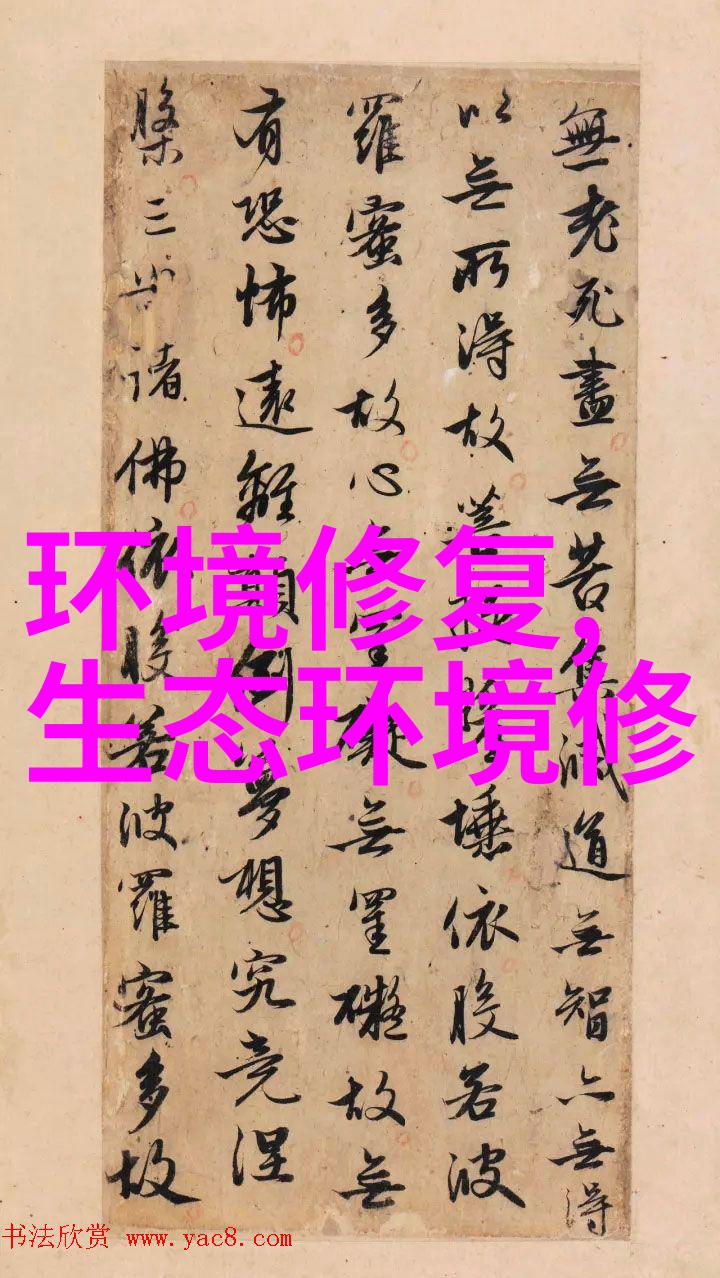 無老死盡无苦集滅道无智亦无得
以无所得故菩提薩埵依般若波
羅蜜多故心无罣礙无罣礙故无
有恐怖遠離顛倒夢想究竟涅
槃三世諸佛依般若波羅蜜多故
环境修复,
生态环境修
书法欣赏 www.yac8.com